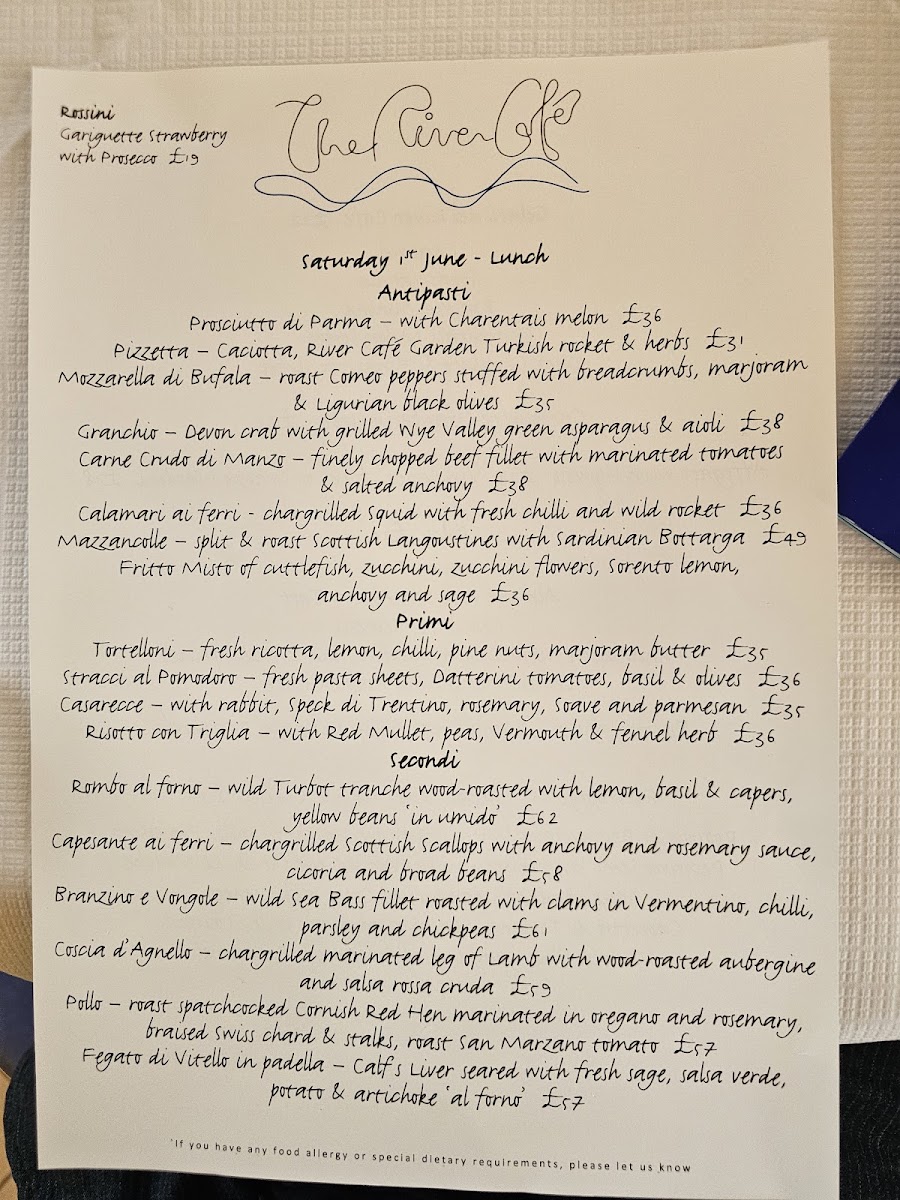 Rossini
Gariguette Strawberry
with Prosecco £19
The River Café
Saturday 1st June - Lunch
Antipasti
Prosciutto di Parma – with Charentais melon £36
Pizzetta – Caciotta, River Café Garden Turkish rocket & herbs £31
Mozzarella di Bufala – roast Corneo peppers stuffed with breadcrumbs, marjoram
& Ligurian black olives £35
Granchio – Devon crab with grilled Wye Valley green asparagus & aioli £38
Carne Crudo di Manzo – finely chopped beef fillet with marinated tomatoes
& salted anchovy £38
Calamari ai ferri - chargrilled Squid with fresh chilli and wild rocket £36
Mazzancolle – split & roast Scottish Langoustines with Sardinian Bottarga £49
Fritto Misto of cuttlefish, zucchini, zucchini flowers, Sorento lemon,
anchovy and sage £36
Primi
Tortelloni – fresh ricotta, lemon, chilli, pine nuts, marjoram butter £35
Stracci al Pomodoro – fresh pasta sheets, Datterini tomatoes, basil & olives £36
Casarecce – with rabbit, Speck di Trentino, rosemary, Soave and parmesan £35
Risotto con Triglia – with Red Mullet, peas, Vermouth & fennel herb £36
Secondi
Rombo al forno – wild Turbot tranche wood-roasted with lemon, basil & capers,
yellow beans 'in umido' £62
Capesante ai ferri – chargrilled Scottish Scallops with anchovy and rosemary sauce,
cicoria and broad beans £58
Branzino e Vongole – wild Sea Bass fillet roasted with clams in Vermentino, chilli,
parsley and chickpeas £61
Coscia d'Agnello – chargrilled marinated leg of Lamb with wood-roasted aubergine
and salsa rossa cruda £59
Pollo – roast spatchcocked Cornish Red Hen marinated in oregano and rosemary,
braised Swiss chard & stalks, roast San Marzano tomato £57
Fegato di Vitello in padella – Calf's Liver seared with fresh sage, salsa verde,
potato & artichoke 'al forno' £57
'If you have any food allergy or special dietary requirements, please let us know